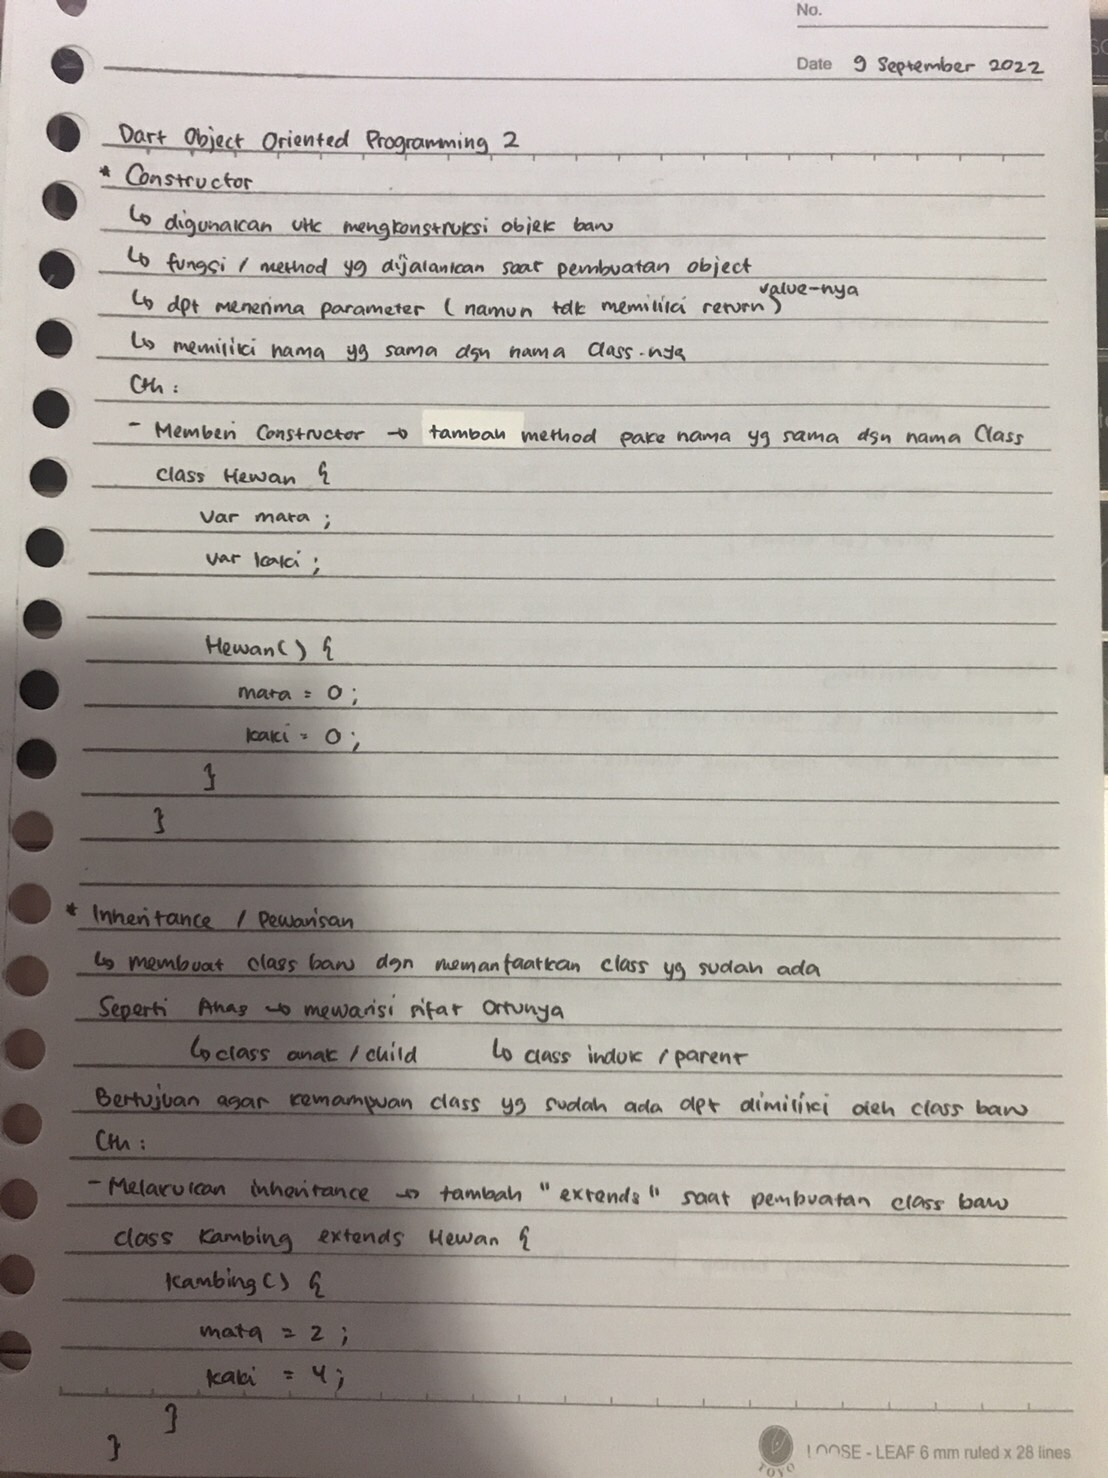 No.
Date 9 September 2022
Dart Object Oriented Programming 2
* Constructor
↳ digunakan utk mengkonstruksi objek baru
↳ fungsi / method yg dijalankan saat pembuatan object
↳ dpt menerima parameter (namun tdk memiliki return value-nya)
↳ memiliki nama yg sama dgn nama Class-nya
Cth :
- Memberi Constructor → tambah method pake nama yg sama dgn nama Class
class Hewan {
var mata ;
var kaki ;
Hewan() {
mata = 0 ;
kaki = 0 ;
}
}
* Inheritance / Pewarisan
↳ membuat class baru dgn memanfaatkan class yg sudah ada
Seperti Anak → mewarisi sifat Ortunya
↳ class anak / child ↳ class induk / parent
Bertujuan agar kemampuan class yg sudah ada dpt dimiliki oleh class baru
Cth :
- Melakukan inheritance → tambah "extends" saat pembuatan class baru
class Kambing extends Hewan {
Kambing() {
mata = 2 ;
kaki = 4 ;
}
}
TOYO LOOSE - LEAF 6 mm ruled x 28 lines